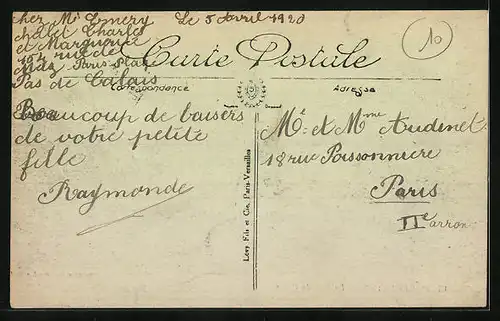 chez Mr Emery Le 5 Avril 1920
châlet Charles
et Marguerite
rue de
Paris-Plage
Pas de Calais
10
Carte Postale
Correspondance
Adresse
Beaucoup de baisers
de votre petite
fille
Raymonde
Lévy Fils et Cie, Paris-Versailles
Mr et Mme Audinet
18 rue Poissonnière
Paris
IIe arron